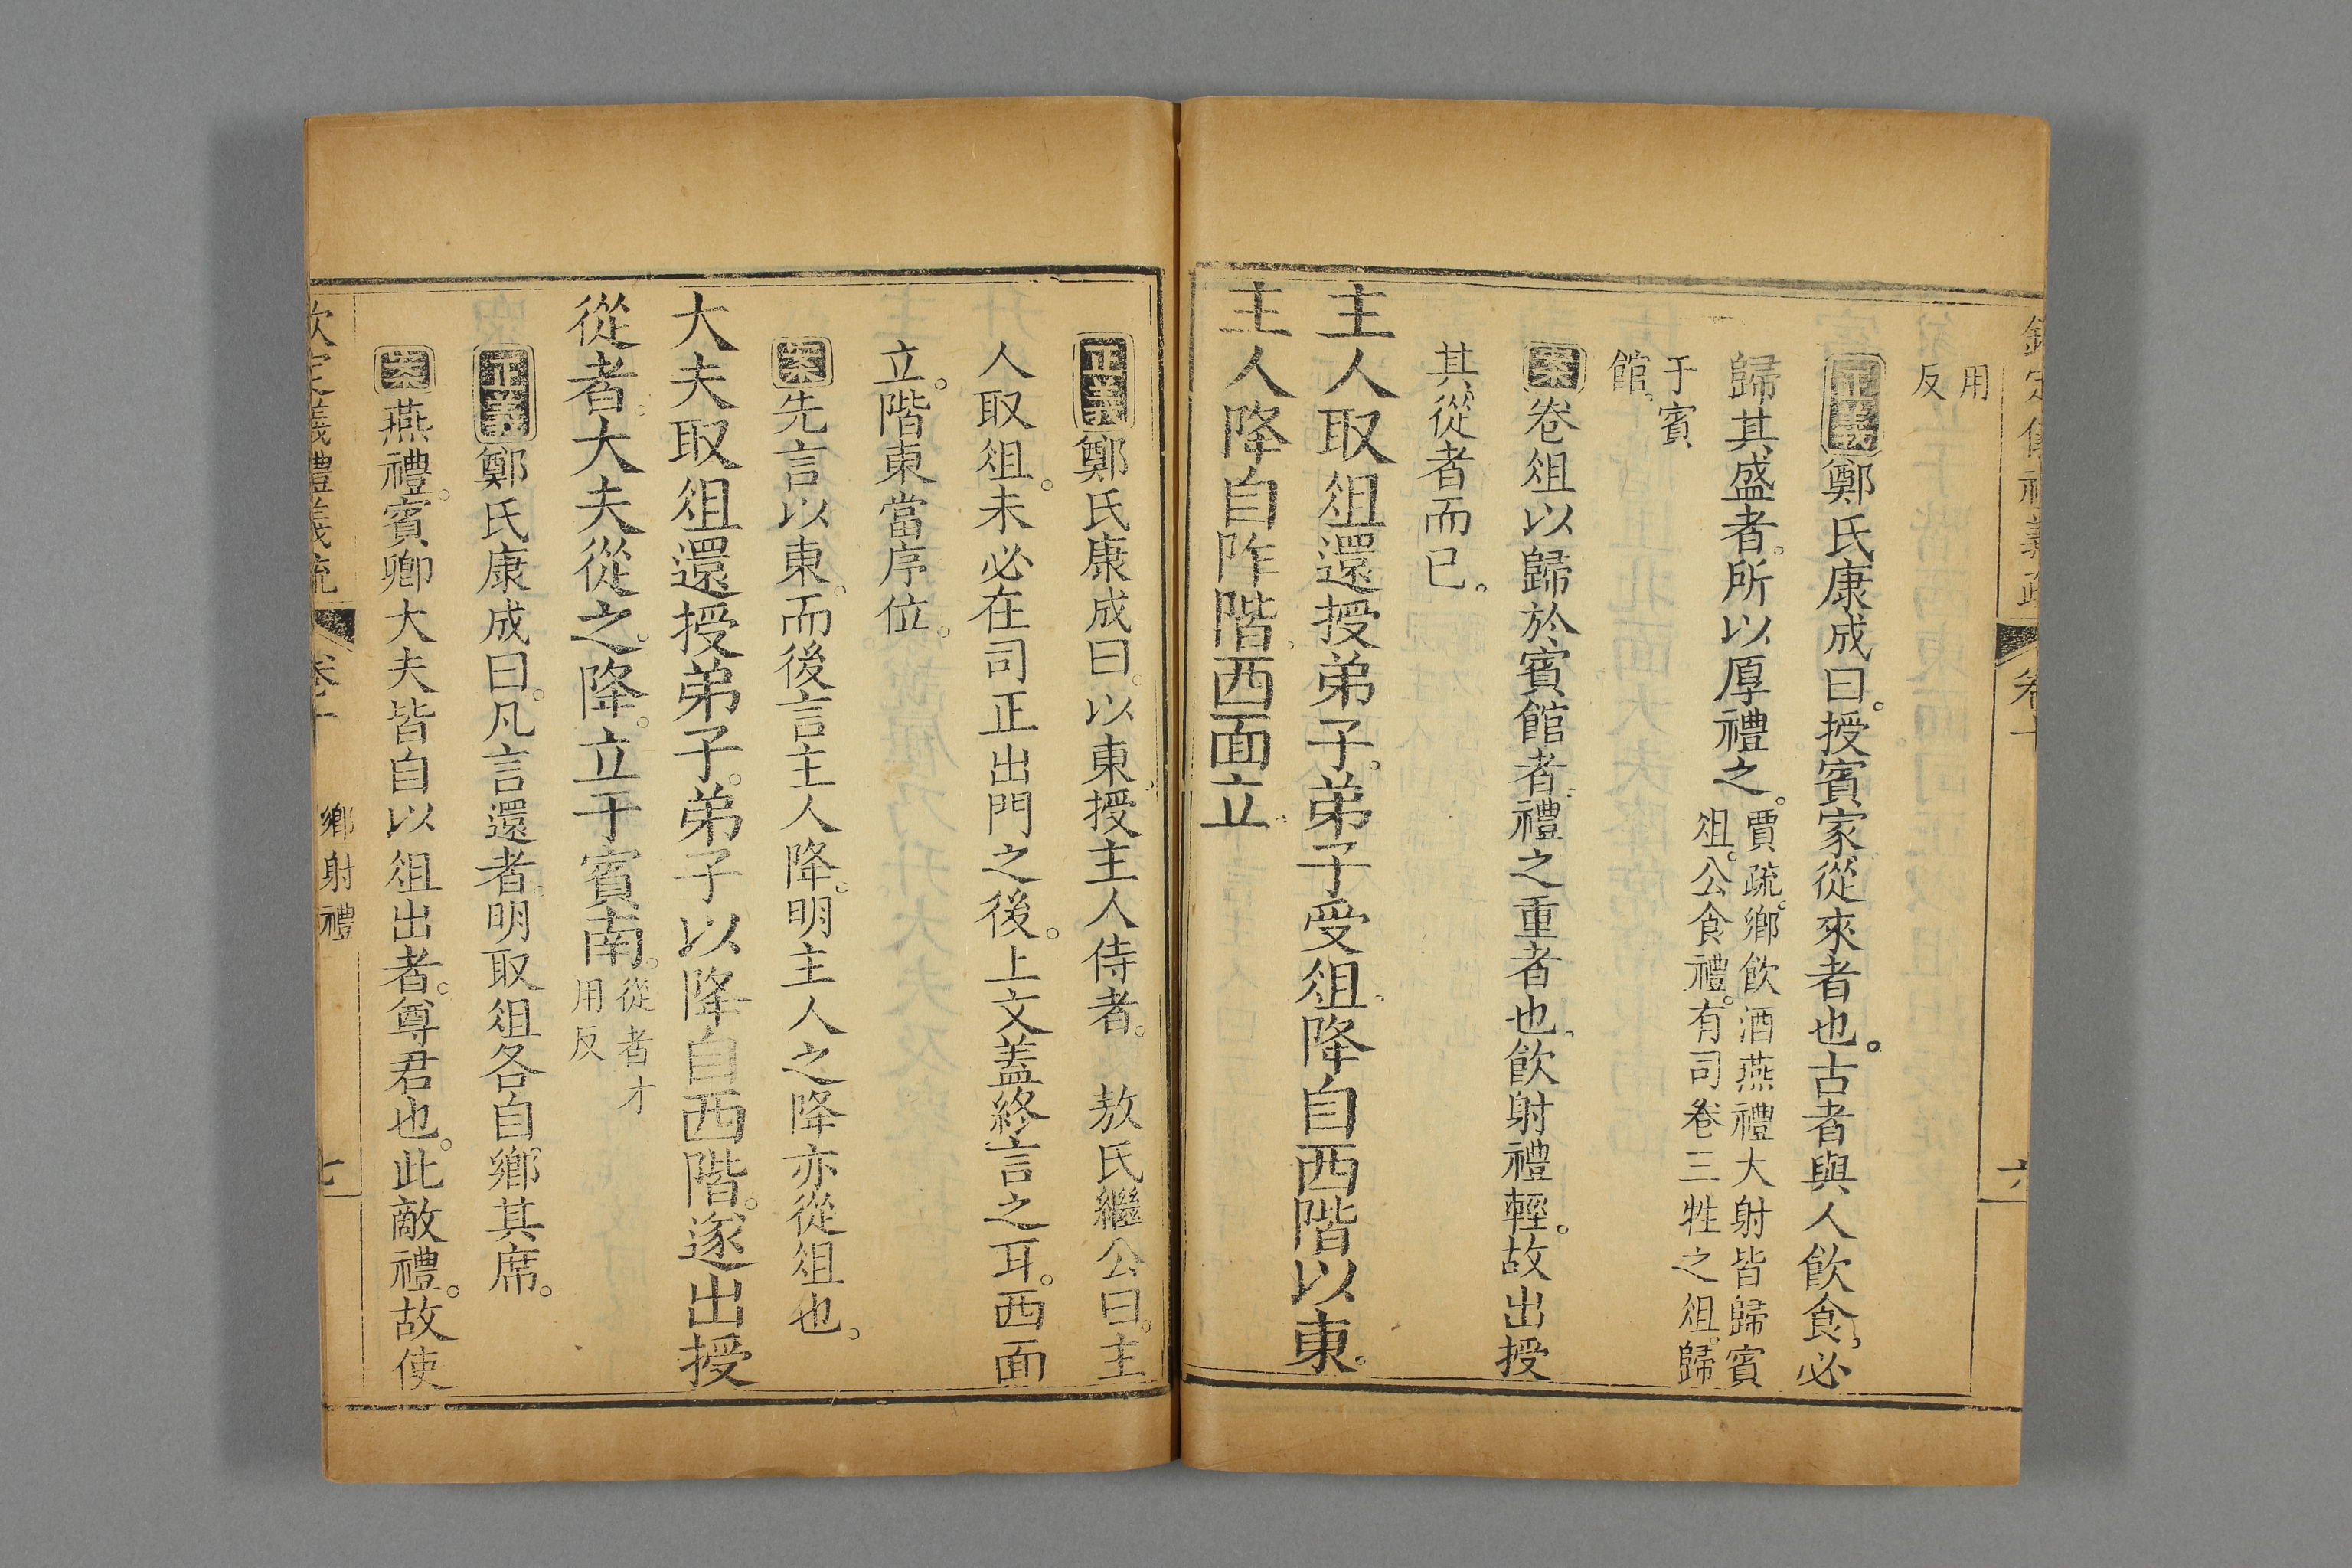 欽定儀禮義疏 卷十 六
用
反
正義鄭氏康成曰。授賓家從來者也。古者與人飲食。必
歸其盛者。所以厚禮之。賈疏。鄉飲酒燕禮大射皆歸賓
俎。公食禮。有司卷三牲之俎。歸
于賓
館。
案卷俎以歸於賓館者。禮之重者也。飲射禮輕。故出授
其從者而已。
主人取俎還授弟子。弟子受俎。降自西階以東。
主人降自阼階。西面立。
正義鄭氏康成曰。以東。授主人侍者。 敖氏繼公曰。主
人取俎。未必在司正出門之後。上文蓋終言之耳。西面
立。階東當序位。
案先言以東。而後言主人降。明主人之降亦從俎也。
大夫取俎還授弟子。弟子以降自西階。遂出授
從者。大夫從之。降。立于賓南。從者才
用反
正義鄭氏康成曰。凡言還者。明取俎各自鄉其席。
案燕禮。賓卿大夫皆自以俎出者。尊君也。此敵禮。故使
欽定義禮義疏 卷十 鄉射禮 七